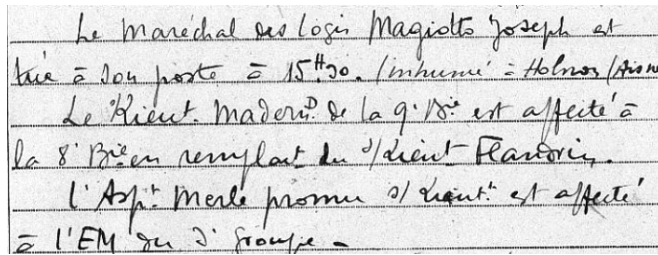 Le Maréchal des logis Magiotto Joseph est
tué à son poste à 15H30. (inhumé à Holnon (Aisne
Le Lieut. Madern de la 9e Bie est affecté à
la 8e Bie en remplact du s/Lieut Flandrin.
L'Aspt Merle promu s/Lieutt est affecté
à l'EM du 3e Groupe -